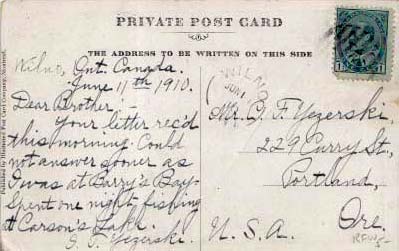 PRIVATE POST CARD
THE ADDRESS TO BE WRITTEN ON THIS SIDE
Wilno, Ont. Canada.
June 11th 1910.
Dear Brother:-
Your letter rec'd
this morning. Could
not answer sooner as
I was at Barry's Bay-
Spent one night fishing
at Carson's Lake.
J. F. Yezerski.
WILNO
JUN
Mr. J. F. Yezerski.
229 Curry St.,
Portland,
Ore.
U. S. A.
1 1